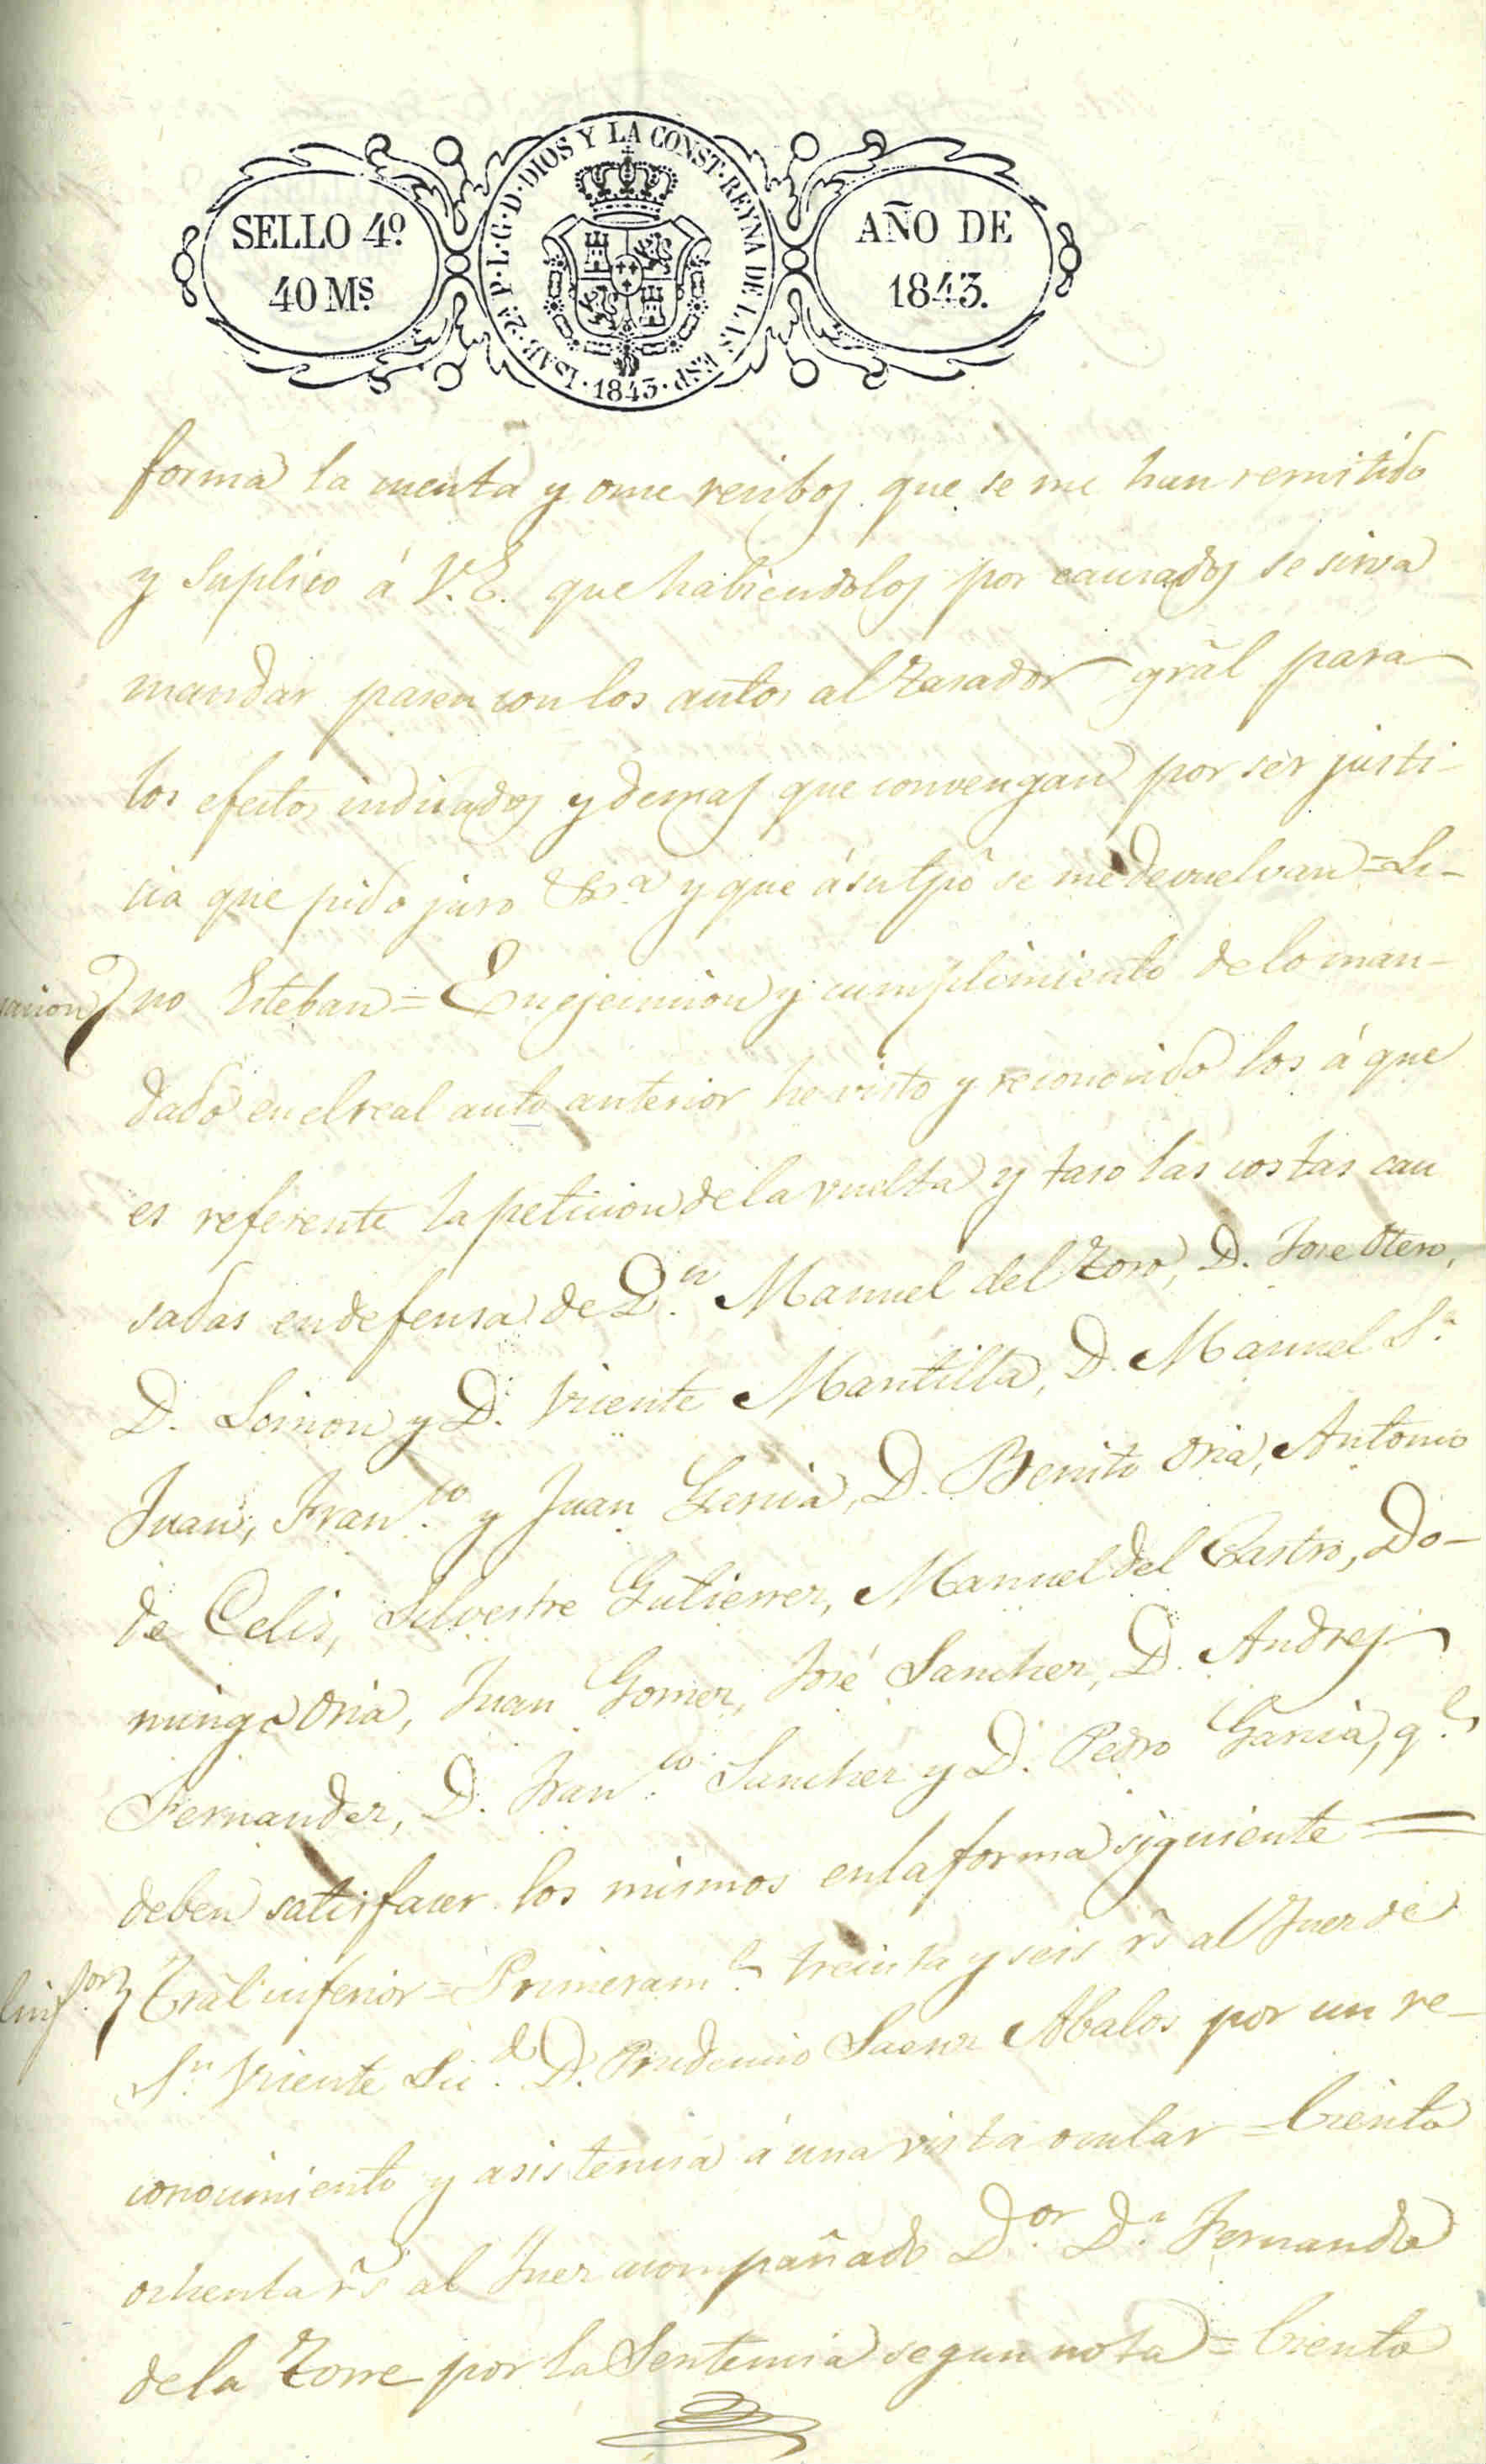 SELLO 4º
40 Ms.
ISAB. 2ª. P. L. G. D. DIOS Y LA CONST. REYNA DE LAS ESP. 1843.
AÑO DE
1843.
forma la cuenta y once recibos que se me han remitido
y suplico á V.E. que habiendolos por causados se sirva
mandar pasen con los autos al Tasador gr̃al para
los efectos indicados y demas que convengan por ser justi-
cia que pido juro &ª y que á su tp̃o se me devuelvan = Li-
no Esteban = En ejecucion y cumplimiento de lo man-
dado en el real auto anterior he visto y reconocido los á que
es referente la peticion de la vuelta y taso las costas cau
sadas en defensa de D.n Manuel del Toro, D. Jose Otero,
D. Simon y D. Vicente Mantilla, D. Manuel S.n
Juan, Fran.co y Juan Garcia, D. Benito Oria, Antonio
de Celis, Silvestre Gutierrez, Manuel del Castro, Do-
mingo Oria, Juan Gomez, José Sanchez, D. Andres
Fernandez, D. Fran.co Sanchez y D. Pedro Garcia, q.e
deben satisfacer los mismos en la forma siguiente =
Tr̃al inferior = Primeram.te treinta y seis r̃s al Juez de
S.n Vicente Lic.do D. Prudencio Saenz Abalos por un re-
conocimiento y asistencia á una vista ocular = Ciento
ochenta r̃s al Juez acompañado D.or D.n Fernando
de la Torre por la Sentencia segun nota = Ciento